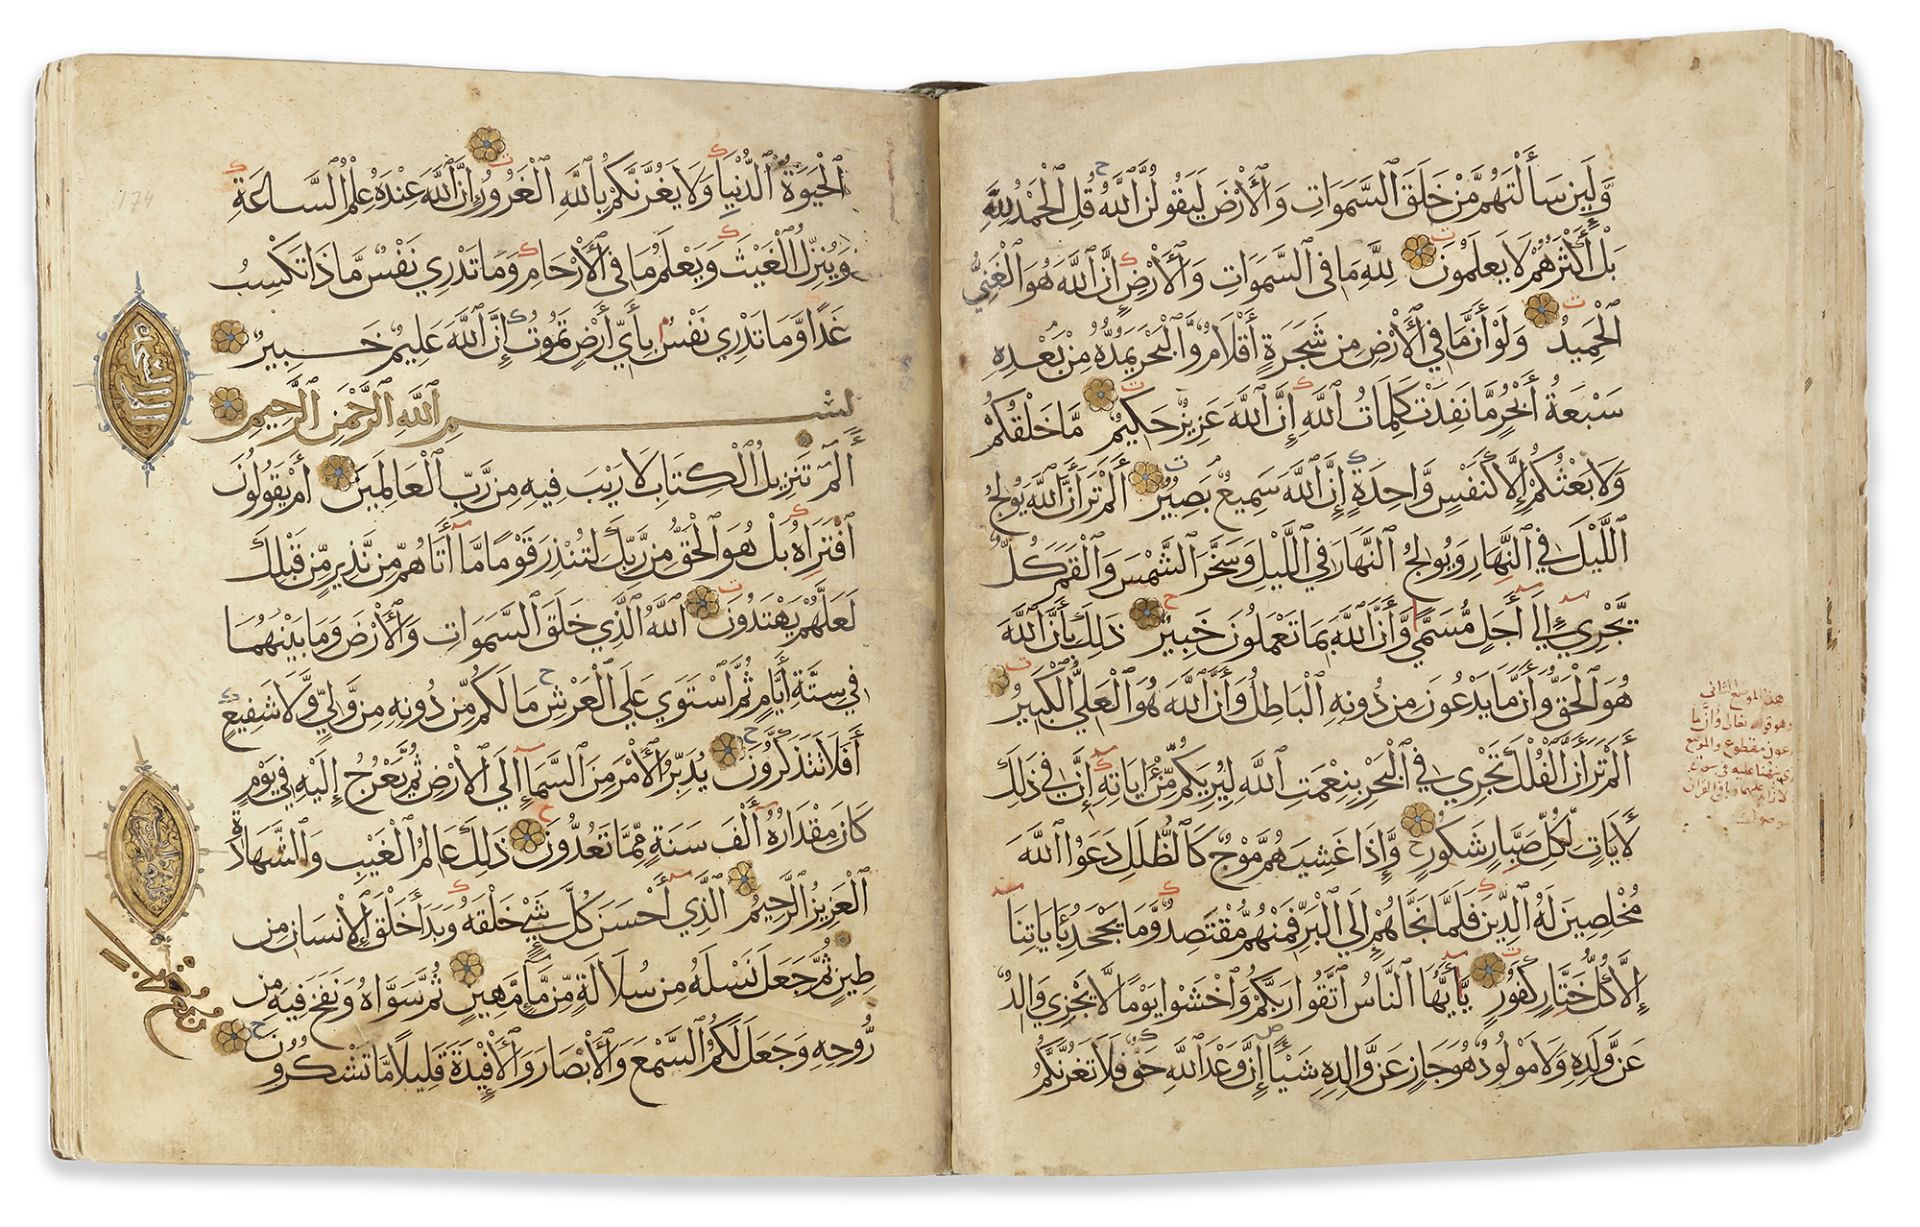 وَلَئِن سَأَلْتَهُم مَّنْ خَلَقَ السَّمٰوَاتِ وَالْأَرْضَ لَيَقُولُنَّ اللَّهُ قُلِ الْحَمْدُ لِلَّهِ
بَلْ أَكْثَرُهُمْ لَا يَعْلَمُونَ لِلَّهِ مَا فِي السَّمٰوَاتِ وَالْأَرْضِ إِنَّ اللَّهَ هُوَ الْغَنِيُّ
الْحَمِيدُ وَلَوْ أَنَّ مَا فِي الْأَرْضِ مِن شَجَرَةٍ أَقْلَامٌ وَالْبَحْرُ يَمُدُّهُ مِن بَعْدِهِ
سَبْعَةُ أَبْحُرٍ مَّا نَفِدَتْ كَلِمَاتُ اللَّهِ إِنَّ اللَّهَ عَزِيزٌ حَكِيمٌ مَّا خَلْقُكُمْ
وَلَا بَعْثُكُمْ إِلَّا كَنَفْسٍ وَّاحِدَةٍ إِنَّ اللَّهَ سَمِيعٌ بَصِيرٌ أَلَمْ تَرَ أَنَّ اللَّهَ يُولِجُ
اللَّيْلَ فِي النَّهَارِ وَيُولِجُ النَّهَارَ فِي اللَّيْلِ وَسَخَّرَ الشَّمْسَ وَالْقَمَرَ كُلٌّ
يَّجْرِي إِلَى أَجَلٍ مُّسَمًّى وَأَنَّ اللَّهَ بِمَا تَعْمَلُونَ خَبِيرٌ ذَلِكَ بِأَنَّ اللَّهَ
هُوَ الْحَقُّ وَأَنَّ مَا يَدْعُونَ مِن دُونِهِ الْبَاطِلُ وَأَنَّ اللَّهَ هُوَ الْعَلِيُّ الْكَبِيرُ
أَلَمْ تَرَ أَنَّ الْفُلْكَ تَجْرِي فِي الْبَحْرِ بِنِعْمَتِ اللَّهِ لِيُرِيَكُم مِّنْ اٰيَاتِهِ إِنَّ فِي ذَلِكَ
لَاٰيَاتٍ لِّكُلِّ صَبَّارٍ شَكُورٍ وَّإِذَا غَشِيَهُم مَّوْجٌ كَالظُّلَلِ دَعَوُا اللَّهَ
مُخْلِصِينَ لَهُ الدِّينَ فَلَمَّا نَجَّاهُمْ إِلَى الْبَرِّ فَمِنْهُم مُّقْتَصِدٌ وَّمَا يَجْحَدُ بِاٰيَاتِنَا
إِلَّا كُلُّ خَتَّارٍ كَفُورٍ يَا أَيُّهَا النَّاسُ اتَّقُوا رَبَّكُمْ وَاخْشَوْا يَوْمًا لَّا يَجْزِي وَالِدٌ
عَن وَّلَدِهِ وَلَا مَوْلُودٌ هُوَ جَازٍ عَن وَّالِدِهِ شَيْئًا إِنَّ وَعْدَ اللَّهِ حَقٌّ فَلَا تَغُرَّنَّكُمُ
هذا الموضع الثاني
وهو قوله تعالى وأن ما
يدعون مقطوع والموضع
الْحَيٰوةُ الدُّنْيَا وَلَا يَغُرَّنَّكُم بِاللَّهِ الْغَرُورُ إِنَّ اللَّهَ عِنْدَهُ عِلْمُ السَّاعَةِ
وَيُنَزِّلُ الْغَيْثَ وَيَعْلَمُ مَا فِي الْأَرْحَامِ وَمَا تَدْرِي نَفْسٌ مَّاذَا تَكْسِبُ
غَدًا وَّمَا تَدْرِي نَفْسٌ بِأَيِّ أَرْضٍ تَمُوتُ إِنَّ اللَّهَ عَلِيمٌ خَبِيرٌ
بِسْمِ اللَّهِ الرَّحْمٰنِ الرَّحِيمِ
الٓمٓ تَنْزِيلُ الْكِتَابِ لَا رَيْبَ فِيهِ مِن رَّبِّ الْعَالَمِينَ أَمْ يَقُولُونَ
افْتَرَاهُ بَلْ هُوَ الْحَقُّ مِن رَّبِّكَ لِتُنْذِرَ قَوْمًا مَّا أَتَاهُم مِّن نَّذِيرٍ مِّن قَبْلِكَ
لَعَلَّهُمْ يَهْتَدُونَ اللَّهُ الَّذِي خَلَقَ السَّمٰوَاتِ وَالْأَرْضَ وَمَا بَيْنَهُمَا
فِي سِتَّةِ أَيَّامٍ ثُمَّ اسْتَوَى عَلَى الْعَرْشِ مَا لَكُم مِّن دُونِهِ مِن وَّلِيٍّ وَّلَا شَفِيعٍ
أَفَلَا تَتَذَكَّرُونَ يُدَبِّرُ الْأَمْرَ مِنَ السَّمَاءِ إِلَى الْأَرْضِ ثُمَّ يَعْرُجُ إِلَيْهِ فِي يَوْمٍ
كَانَ مِقْدَارُهُ أَلْفَ سَنَةٍ مِّمَّا تَعُدُّونَ ذَلِكَ عَالِمُ الْغَيْبِ وَالشَّهَادَةِ
الْعَزِيزُ الرَّحِيمُ الَّذِي أَحْسَنَ كُلَّ شَيْءٍ خَلَقَهُ وَبَدَأَ خَلْقَ الْإِنْسَانِ مِن
طِينٍ ثُمَّ جَعَلَ نَسْلَهُ مِن سُلَالَةٍ مِّن مَّاءٍ مَّهِينٍ ثُمَّ سَوَّاهُ وَنَفَخَ فِيهِ مِن
رُّوحِهِ وَجَعَلَ لَكُمُ السَّمْعَ وَالْأَبْصَارَ وَالْأَفْئِدَةَ قَلِيلًا مَّا تَشْكُرُونَ